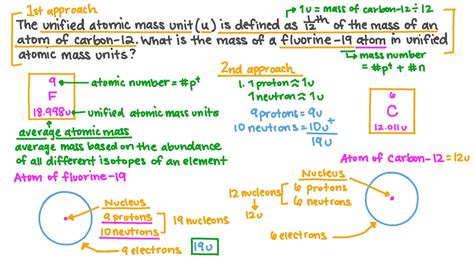 1st approach
1u = mass of carbon-12 ÷ 12
The unified atomic mass unit (u) is defined as 1/12th of the mass of an
atom of carbon-12. What is the mass of a fluorine-19 atom in unified
atomic mass units?
mass number
= #p⁺ + #n
2nd approach
9
F
18.998u
atomic number = #p⁺
unified atomic mass units
1. 1 proton ≈ 1u
1 neutron ≈ 1u
9 protons = 9u
10 neutrons = 10u +
19u
6
C
12.011u
average atomic mass
average mass based on the abundance
of all different isotopes of an element
Atom of fluorine-19
Nucleus
9 protons
10 neutrons
19 nucleons
9 electrons
19u
Atom of carbon-12 = 12u
Nucleus
6 protons
6 neutrons
12 nucleons
12u
6 electrons